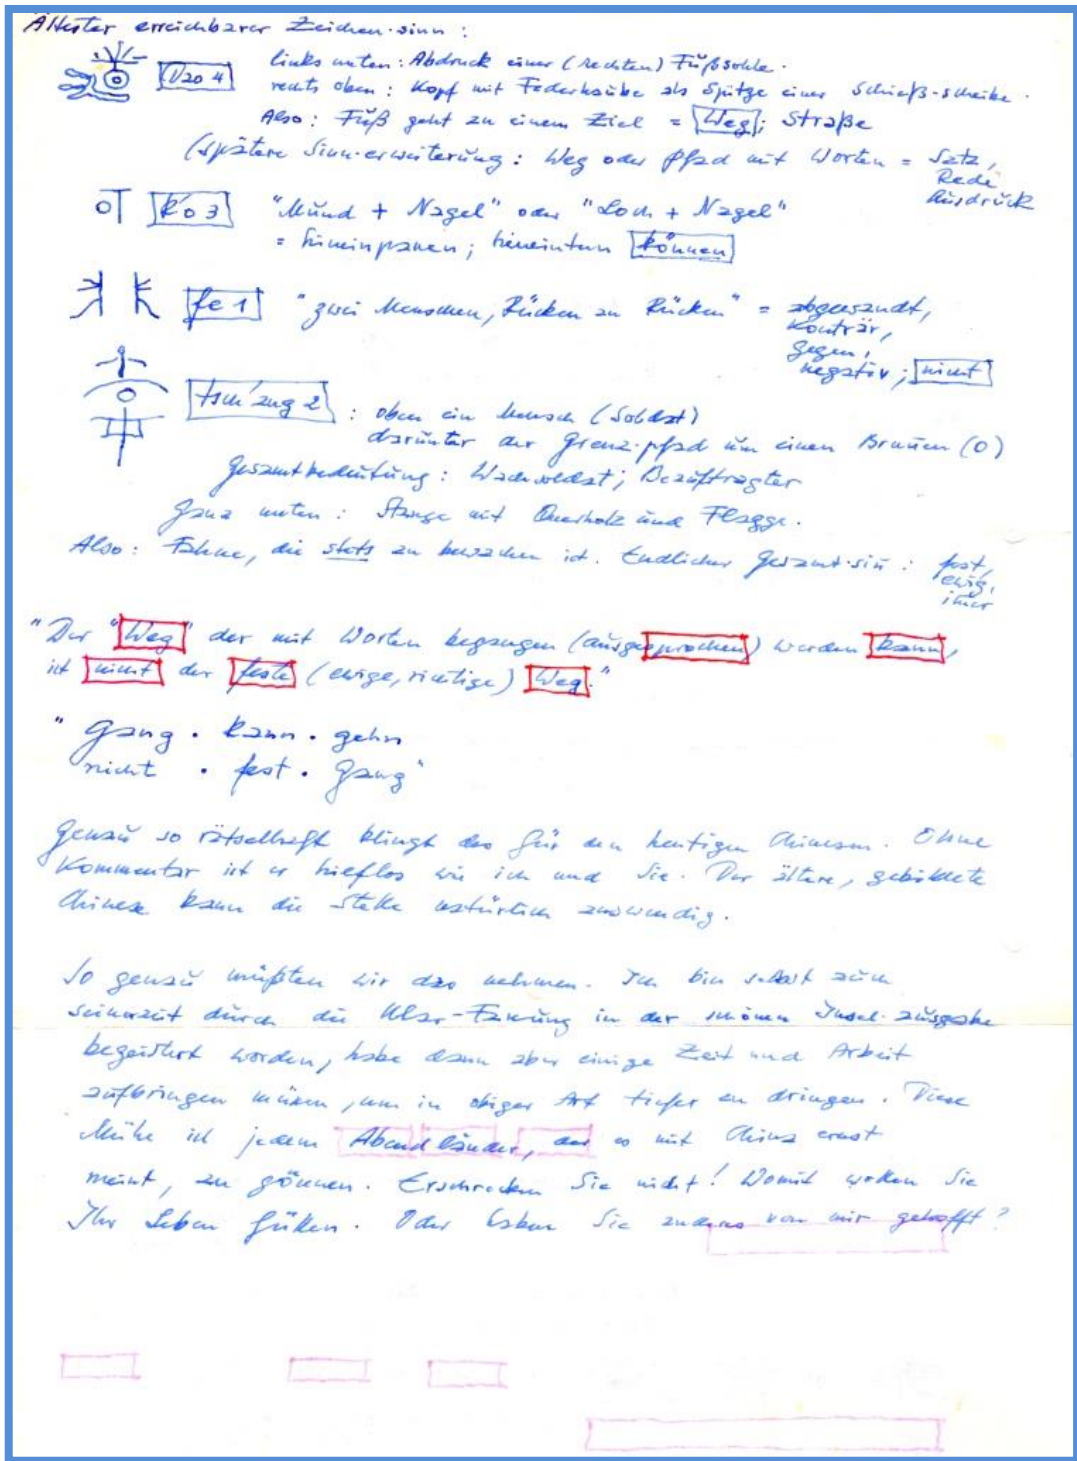 Ältester erreichbarer Zeichen·sinn :
Dao 4 links unten : Abdruck einer (rechten) Fußsohle.
rechts oben : Kopf mit Federhaube als Spitze einer Schieß-scheibe.
Also : Fuß geht zu einem Ziel = Weg ; Straße
(spätere Sinn-erweiterung : Weg oder Pfad mit Worten = Satz,
Rede
Ausdruck
Ko 3 "Mund + Nagel" oder "Loch + Nagel"
= hineinpassen ; hineintun können
fe 1 "zwei Menschen, Rücken zu Rücken" = abgewandt,
konträr,
gegen,
negativ ; nicht
tsch'ang 2 : oben ein Mensch (Soldat)
darunter der Grenz·pfad um einen Brunnen (O)
Gesamtbedeutung : Wachsoldat ; Beauftragter
Ganz unten : Stange mit Querholz und Flagge.
Also : Fahne, die stets zu bewachen ist. Endlicher Gesamt·sin̅ : fest,
ewig,
im̅er
"Der "Weg" der mit Worten begangen (ausgesprochen) werden kann,
ist nicht der feste (ewige, richtige) Weg."
" Gang · kann · gehn
nicht · fest · Gang"
Genau so rätselhaft klingt das für den heutigen Chinesen. Ohne
Kommentar ist er hilflos wie ich und Sie. Der ältere, gebildete
Chinese kann die Stelle natürlich auswendig.
So genau müßten wir das nehmen. Ich bin selbst zum
seinerzeit durch die Fassung in der schönen Insel·ausgabe
begeistert worden, habe dann aber einige Zeit und Arbeit
aufbringen müssen, um in obiger Art tiefer zu dringen. Diese
Mühe ist jedem Abendländer, der es mit China ernst
meint, zu gönnen. Erschrecken Sie nicht! Womit wollen Sie
Ihr Leben füllen. Oder haben Sie anderes von mir gehofft?